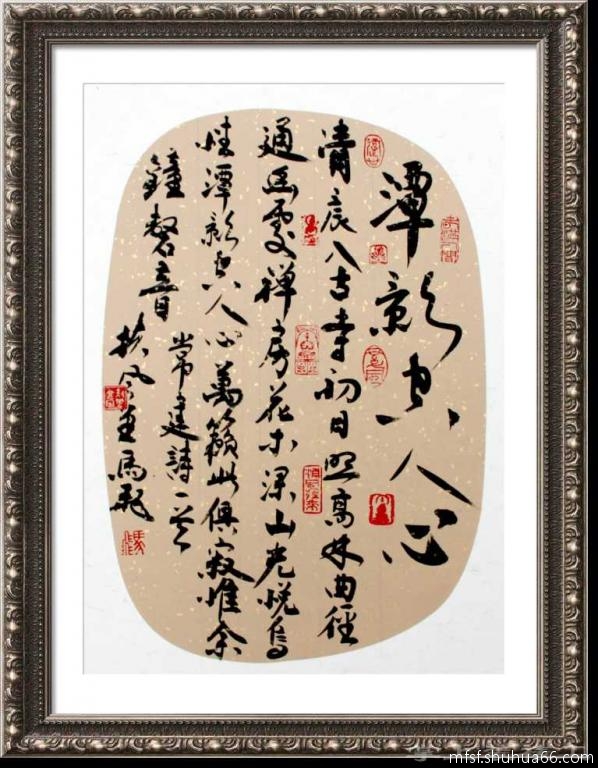 潭影空人心
清辰入古寺初日照高林曲径
通幽處禅房花木深山光悦鳥
性潭影空人心萬籟此俱寂惟余
鐘磬音
常建詩一首
扶风馬
mfsf.shuhua66.com